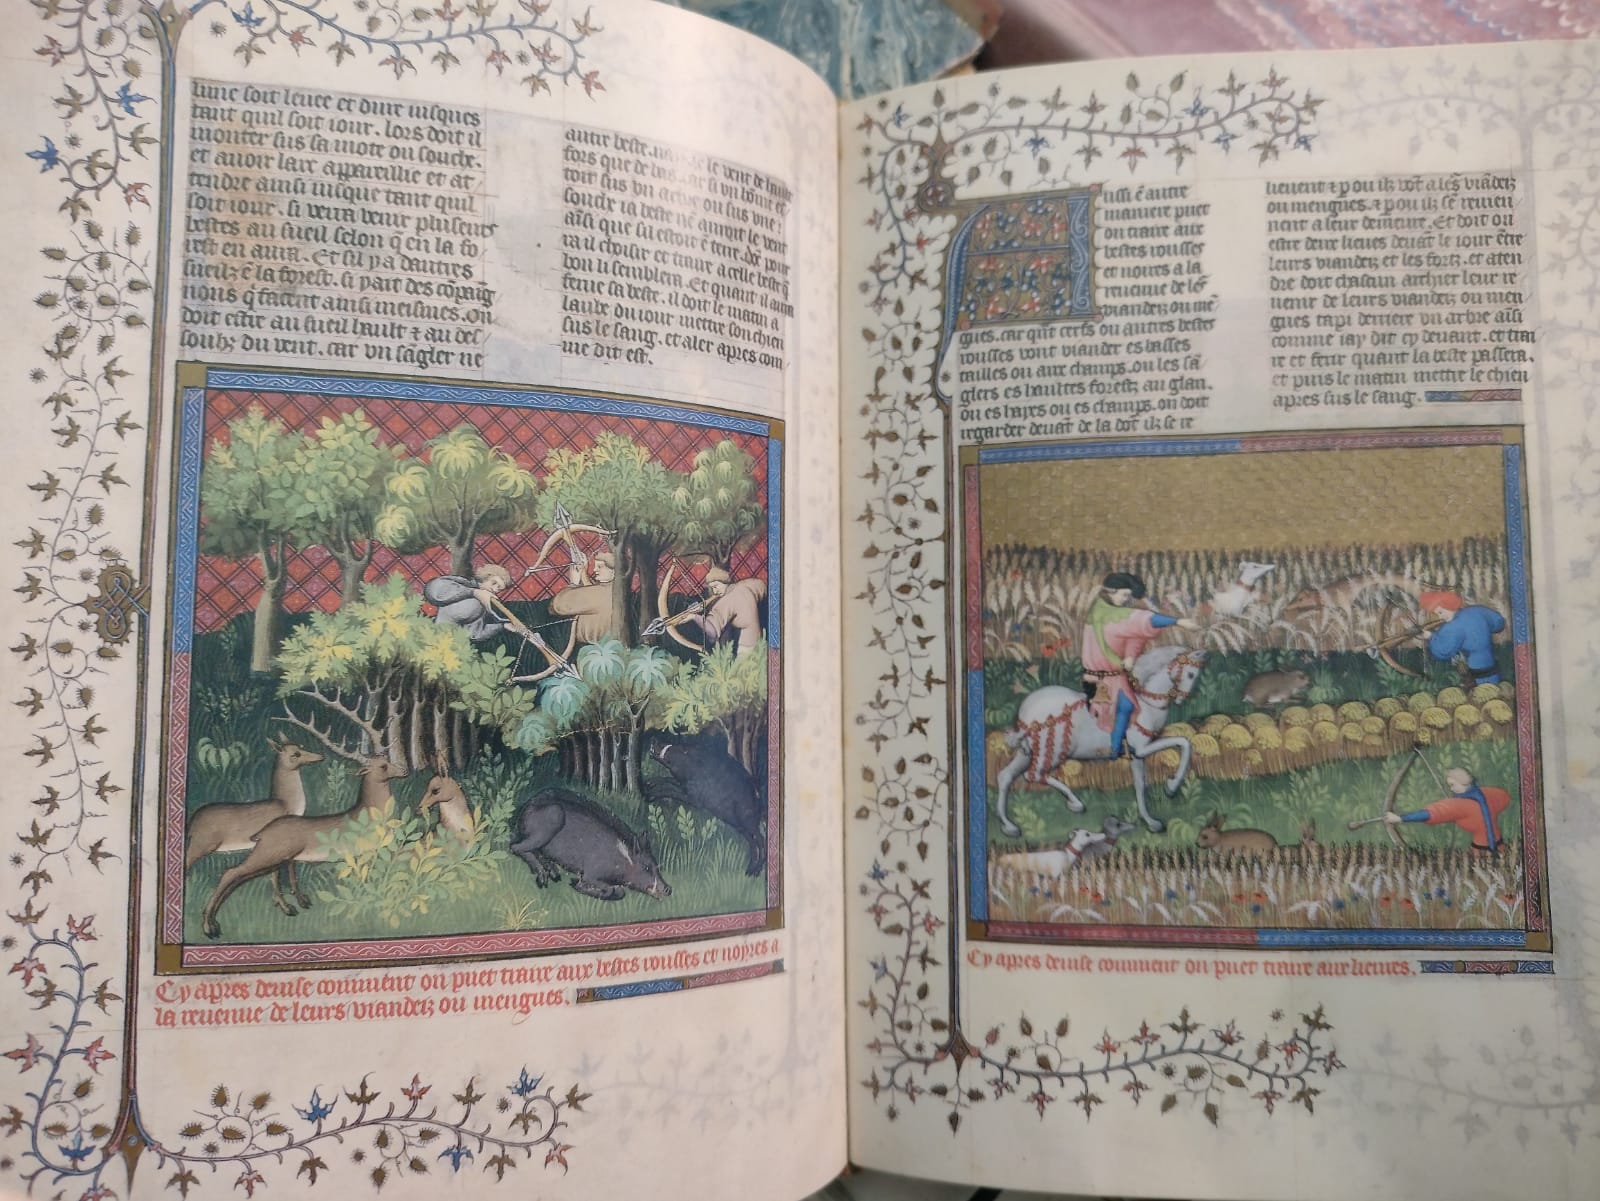 lune soit levee et dure iusques
tant quil soit iour. lors doit il
monter sus sa mote ou souche.
et auoir larc appareillie et at
tendre ainsi iusque tant quil
soit iour. si verra venir pluiseurs
bestes au sueil selon q̃ en la fo
rest en aura. Et sil y a dautres
sueilz ẽ la forest. si y ait des cõpaig
nons q̃ facent ainsi meismes. On
doit estre au sueil hault ⁊ au des
soubz du vent. car vn sãgler ne
autre beste le vent de hault
fors que de bas. car si vn hõme est
toit sus vn arbre ou sus vne
souche ia beste nẽ auroit le vent
aĩsi que sil estoit ẽ terre. Dõt pour
ra il choisir et traire a celle beste q̃
bon li semblera. Et quant il aura
ferue sa beste. il doit le matin a
laube du iour mettre son chien
sus le sang. et aler apres com
me dit est.
Cy apres deuise comment on puet traire aux bestes rousses et noyres a
la reuenue de leurs viandeiz ou mengues.
Aussi ẽ autre
maniere puet
on traire aux
bestes rousses
et noires a la
reuenue de lers̃
viandeiz ou mẽ
gues. car qũt cerfs ou autres bestes
rousses vont viander es basses
tailles ou aux champs. ou les sã
glers es haultes forestz au glan.
ou es hayes ou es champs. on doit
regarder deuãt de la dõt ilz se re
lieuent ⁊ p ou ilz võt a lers̃ viãdeiz
ou mengues. ⁊ p ou ilz se reuien
nent a leur demeure. Et doit on
estre deux lieues deuãt le iour ẽtre
leurs viandeiz et les fortz. et aten
dre doit chascun archier leur re
uenir de leurs viandeiz ou men
gues tapi derriere vn arbre aĩsi
comme iay dit cy deuant. et trai
re et ferir quant la beste passera.
et puis le matin mettre le chien
apres sus le sang.
Cy apres deuise comment on puet traire aux lieures.